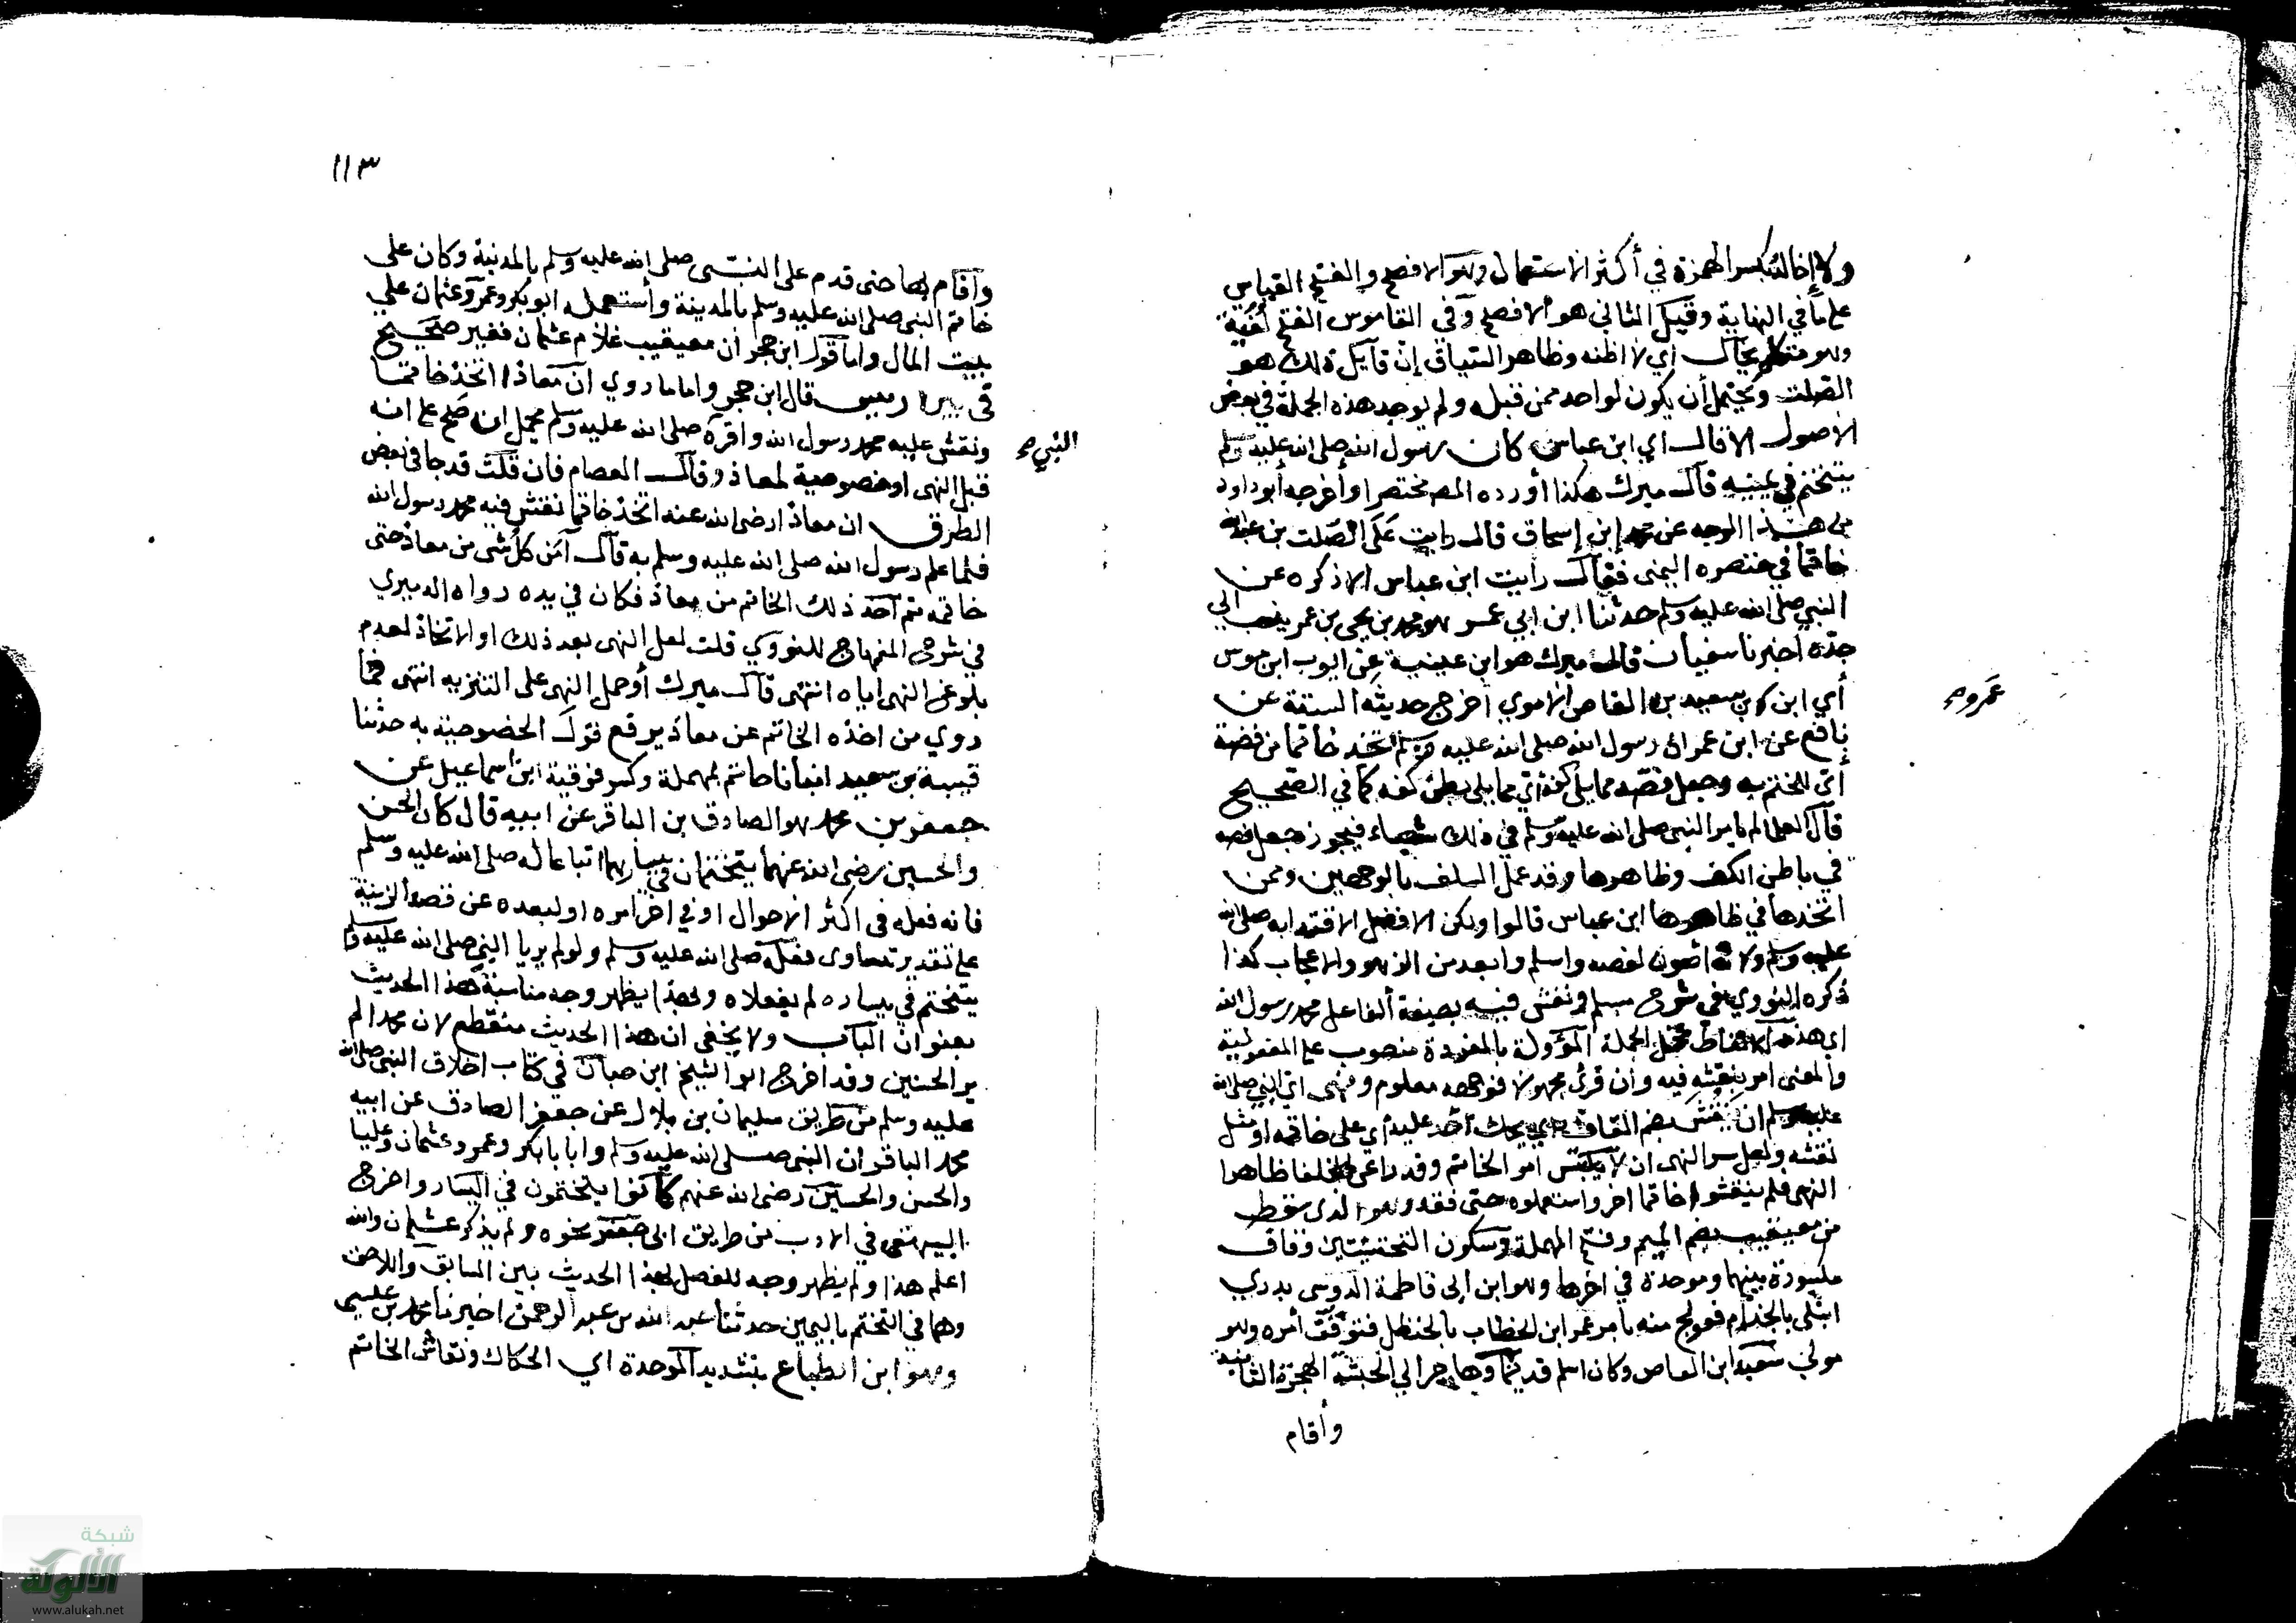 ولا إخاله بكسر الهمزة في أكثر الاستعمال وهو الافصح والفتح القياس
على ما في النهاية وقيل الثاني هو الافصح وفي القاموس الفتح لغية
وهو متكلم يخال أي لا اظنه وظاهر السياق إن قايل ذلك هو
الصلت ويحتمل أن يكون لواحد ممن قبله ولم توجد هذه الجملة في بعض
الاصول الا قال أي ابن عباس كان رسول الله صلى الله عليه وسلم
يتختم في يمينه قال ميرك هكذا أورده المص مختصرا وأخرجه أبو داود
من هذا الوجه عن محمد إبن إسحاق قال رايت على الصلت بن عبد الله
خاتما في خنصره اليمنى فقال رايت ابن عباس الا ذكره عن
النبي صلى الله عليه وسلم حدثنا ابن ابي عمر هو محمد بن يحي بن عمر ينسب الي
جده اخبرنا سفيان قال ميرك هو ابن عيينة عن ايوب ابن موسى
أي ابن عمرو بن سعيد بن العاص الاموي اخرج حديثه الستة عن
نافع عن ابن عمر ان رسول الله صلى الله عليه وسلم اتخذ خاتما من فضة
اي للختم به وجعل فصه مما يلي كفه اي مما يلي بطن كفه كما في الصحيح
قال العلما لم يامر النبي صلى الله عليه وسلم في ذلك شيئاء فيجوز جعل فصه
في باطن الكف وظاهرها وقد عمل السلف بالوجهين وممن
اتخذها في ظاهرها ابن عباس قالوا ولكن الافضل الاقتدا به صلى الله
عليه وسلم ولانه اصون لفصه واسلم وابعد من الزهو والاعجاب كذا
ذكره النووي في شرح مسلم ونقش فيه بصيغة ألفاعل محمد رسول الله
اي هذه الالفاظ محمل الجملة المؤولة بالمفردة منصوب على المفعولية
والمعنى امر بنقشه فيه وان قرئ مجهولا فوجهه معلوم ونهى اي النبي صلى الله
عليه وسلم ان ينقش بضم القاف اي يحك أحد عليه أي على خاتمه او مثل
نقشه ولعل سر النهى ان لا يلتبس امر الخاتم وقد راعى الخلفا ظاهرا
النهي فلم ينقشوا خاتما اخر واستعملوه حتى فقد وهو الذي سقط
من معيقيب بضم الميم وفتح المهملة وسكون التحتيتين وقاف
مكسورة بينهما وموحدة في اخرها وهو ابن ابي فاطمة الدوسي بدري
ابتلى بالجذام فعولج منه بامر عمر ابن الخطاب بالحنظل فتوقف أمره وهو
مولى سعيد ابن العاص وكان اسلم قديما وهاجر الي الحبشة الهجرة الثانية
وأقام
عمرو صح
١١٣
وأقام بها حتى قدم على النبي صلى الله عليه وسلم بالمدينة وكان على
خاتم النبي صلى الله عليه وسلم بالمدينة واستعمله ابو بكر وعمر وعثمان على
بيت المال واما قول ابن حجر ان معيقيب غلام عثمان فغير صحيح
في بير اريس قال ابن حجر واما ما روي ان معاذا اتخذ خاتما
ونقش عليه محمد رسول الله واقره صلى الله عليه وسلم محتمل ان صح على انه
قبل النهي او خصوصية لمعاذ وقال العصام فان قلت قد جا في بعض
الطرق ان معاذا رضي الله عنه اتخذ خاتما نقش فيه محمد رسول الله
فلما علم رسول الله صلى الله عليه وسلم به قال آمن كل شي من معاذ حتى
خاتمه ثم أخذ ذلك الخاتم من معاذ فكان في يده رواه الدميري
في شرح المنهاج للنووي قلت لعل النهى بعد ذلك او الاتخاذ لعدم
بلوغ النهى اياه انتهى قال ميرك أو حمل النهى على التنزيه انتهى فما
روي من اخذه الخاتم عن معاذ يرفع قول الخصوصية به حدثنا
قتيبة بن سعيد انبانا حاتم بمهملة وكسر فوقية ابن اسماعيل عن
جعفر بن محمد هو الصادق بن الباقر عن ابيه قال كان الحسن
والحسين رضى الله عنهما يتختمان في يسارهما اتباعا له صلى الله عليه وسلم
فانه فعله في اكثر الاحوال او في اخر امره او لبعده عن قصد الزينة
على تقدير تساوى فعله صلى الله عليه وسلم ولو لم يريا النبي صلى الله عليه وسلم
يتختم في يساره لم يفعلاه ولهذا يظهر وجه مناسبة هذا الحديث
بعنوان الباب ولا يخفى ان هذا الحديث منقطع لان محمدا لم
ير الحسنين وقد اخرج ابو الشيخ ابن حبان في كتاب اخلاق النبي صلى الله
عليه وسلم من طريق سليمان بن بلال عن جعفر الصادق عن ابيه
محمد الباقر ان النبي صلى الله عليه وسلم وابا بكر وعمر وعثمان وعليا
والحسن والحسين رضى الله عنهم كانوا يتختمون في اليسار واخرج
البيهقى في الادب من طريق ابي جعفر نحوه ولم يذكر عثمان والله
اعلم هذا ولم يظهر وجه للفصل لهذا الحديث بين السابق واللاحق
وهما في التختم باليمين حدثنا عبد الله بن عبد الرحمن اخبرنا محمد بن عيسى
وهو ابن الطباع بتشديد الموحدة اي الحكاك ونقاش الخاتم
النبي صح
شبكة
الألوكة
www.alukah.net